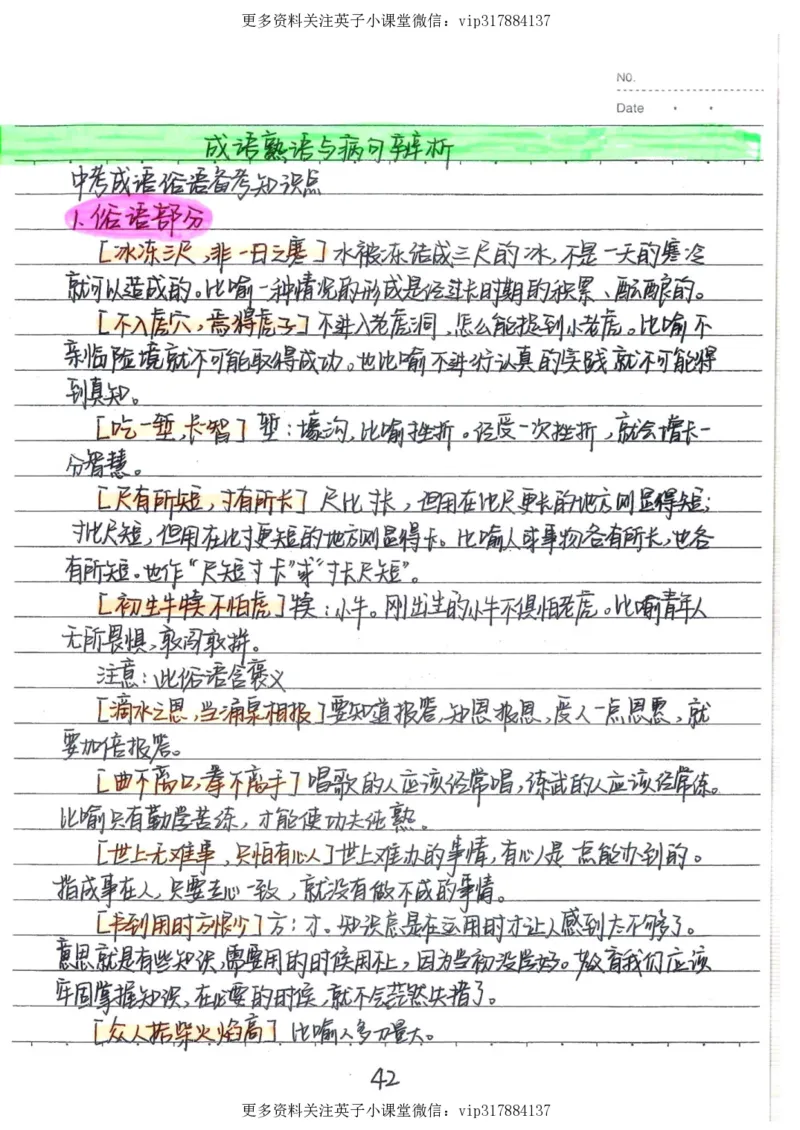 更多资料关注英子小课堂微信：vip317884137
NO.
Date
成语熟语与病句辨析
中考成语俗语备考知识点
1.俗语部分
[冰冻三尺，非一日之寒]水被冻结成三尺的冰，不是一天的寒冷
就可以造成的。比喻一种情况的形成是经过长时期的积累、酝酿的。
[不入虎穴，焉得虎子]不进入老虎洞，怎么能捉到小老虎。比喻不
亲临险境就不可能取得成功。也比喻不进行认真的实践就不可能得
到真知。
[吃一堑，长智]堑：壕沟，比喻挫折。经受一次挫折，就会增长一
分智慧。
[尺有所短，寸有所长]尺比寸长，但用在比尺更长的地方则显得短；
寸比尺短，但用在比寸更短的地方则显得长。比喻人或事物各有所长，也各
有所短。也作“尺短寸长”或“寸长尺短”。
[初生牛犊不怕虎]犊：小牛。刚出生的小牛不惧怕老虎。比喻青年人
无所畏惧，敢闯敢拼。
注意：此俗语含褒义
[滴水之恩，当涌泉相报]要知道报答，知恩报恩，受人一点恩惠，就
要加倍报答。
[曲不离口，拳不离手]唱歌的人应该经常唱，练武的人应该经常练。
比喻只有勤学苦练，才能使功夫纯熟。
[世上无难事，只怕有心人]世上难办的事情，有心人是总能办到的。
指成事在人，只要志心一致，就没有做不成的事情。
[书到用时方恨少]方：才。知识总是在运用时才让人感到太不够了。
意思就是有些知识，需要用的时候用不上，因为当初没学好。教育我们应该
牢固掌握知识，在必要的时候，就不会茫然失措了。
[众人拾柴火焰高]比喻人多力量大。
42
更多资料关注英子小课堂微信：vip317884137